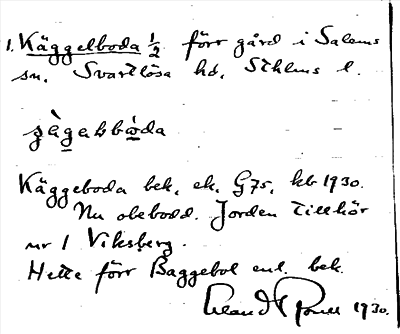 1. Käggelboda ½ förr gård i Salems
sn. Svartlösa hd, Sthlms l.
Käggeboda bek. ek. G75, kb 1930.
Nu obebodd. Jorden tillhör
nr 1 Viksberg.
Hette förr Baggebol enl. bek.
1930.